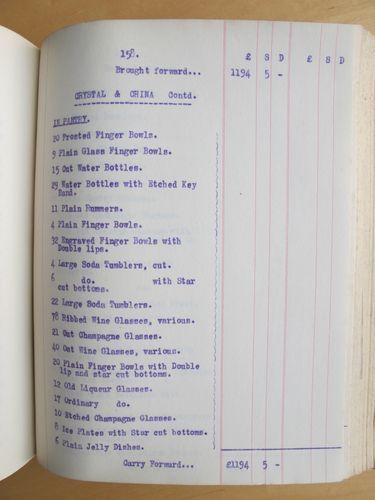 158.
£ S D £ S D
Brought forward... 1194 5 -
CRYSTAL & CHINA Contd.
IN PANTRY.
20 Frosted Finger Bowls.
9 Plain Glass Finger Bowls.
15 Cut Water Bottles.
29 Water Bottles with Etched Key
Band.
11 Plain Rummers.
4 Plain Finger Bowls.
32 Engraved Finger Bowls with
Double lips.
4 Large Soda Tumblers, cut.
6 do. with Star
cut bottoms.
22 Large Soda Tumblers.
78 Ribbed Wine Glasses, various.
21 Cut Champagne Glasses.
40 Cut Wine Glasses, various.
20 Plain Finger Bowls with Double
lip and star cut bottoms.
12 Old Liqueur Glasses.
17 Ordinary do.
10 Etched Champagne Glasses.
8 Ice Plates with Star cut bottoms.
6 Plain Jelly Dishes.
Carry Forward... £1194 5 -